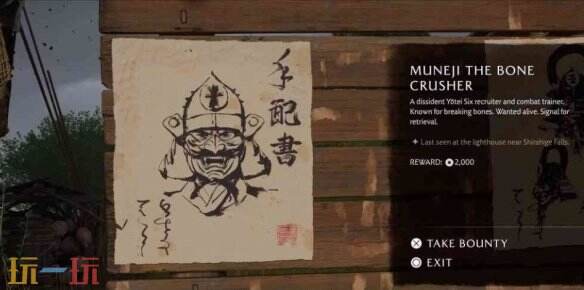 手配書
MUNEJI THE BONE
CRUSHER
A dissident Yōtei Six recruiter and combat trainer.
Known for breaking bones. Wanted alive. Signal for
retrieval.
Last seen at the lighthouse near Shirohige Falls.
REWARD: 2,000
TAKE BOUNTY
EXIT
玩一玩